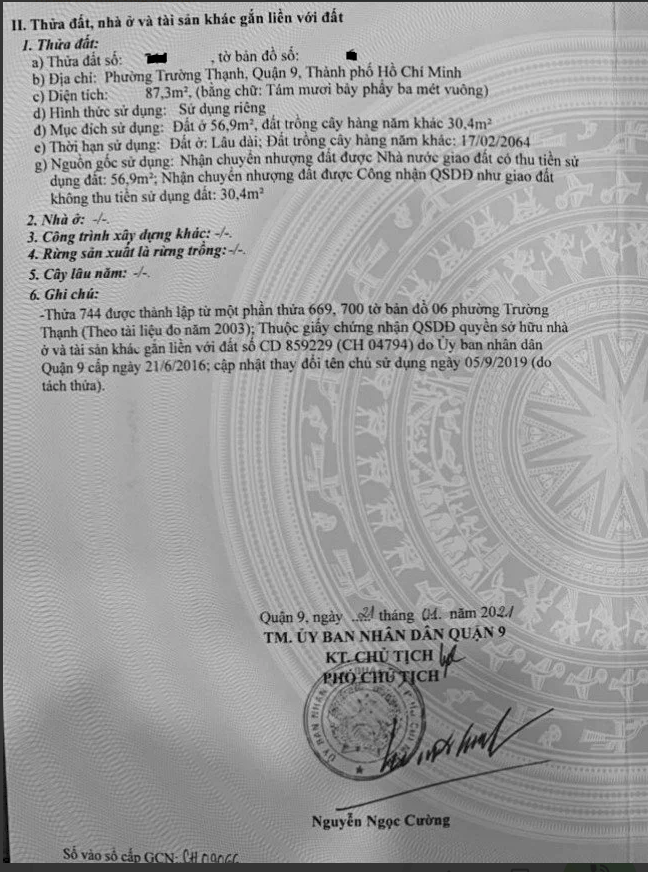 II. Thửa đất, nhà ở và tài sản khác gắn liền với đất
1. Thửa đất:
a) Thửa đất số: , tờ bản đồ số:
b) Địa chỉ: Phường Trường Thạnh, Quận 9, Thành phố Hồ Chí Minh
c) Diện tích: 87,3m², (bằng chữ: Tám mươi bảy phẩy ba mét vuông)
d) Hình thức sử dụng: Sử dụng riêng
đ) Mục đích sử dụng: Đất ở 56,9m², đất trồng cây hàng năm khác 30,4m²
e) Thời hạn sử dụng: Đất ở: Lâu dài; Đất trồng cây hàng năm khác: 17/02/2064
g) Nguồn gốc sử dụng: Nhận chuyển nhượng đất được Nhà nước giao đất có thu tiền sử
dụng đất: 56,9m²; Nhận chuyển nhượng đất được Công nhận QSDĐ như giao đất
không thu tiền sử dụng đất: 30,4m²
2. Nhà ở: -/-.
3. Công trình xây dựng khác: -/-.
4. Rừng sản xuất là rừng trồng: -/-.
5. Cây lâu năm: -/-.
6. Ghi chú:
-Thửa 744 được thành lập từ một phần thửa 669, 700 tờ bản đồ 06 phường Trường
Thạnh (Theo tài liệu đo năm 2003); Thuộc giấy chứng nhận QSDĐ quyền sở hữu nhà
ở và tài sản khác gắn liền với đất số CD 859229 (CH 04794) do Ủy ban nhân dân
Quận 9 cấp ngày 21/6/2016; cập nhật thay đổi tên chủ sử dụng ngày 05/9/2019 (do
tách thửa).
Quận 9, ngày 21 tháng 01. năm 2021
TM. ỦY BAN NHÂN DÂN QUẬN 9
KT. CHỦ TỊCH
PHÓ CHỦ TỊCH
Nguyễn Ngọc Cường
Số vào sổ cấp GCN: CH